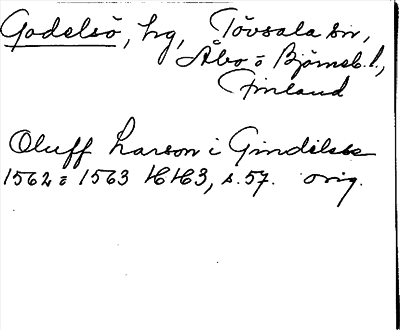 Godelsö, hg, Tövsala sn,
Åbo o Björneb. l.,
Finland
Oluff Larson i Gindelsbe
1562 o 1563 KH3, s. 57. orig.